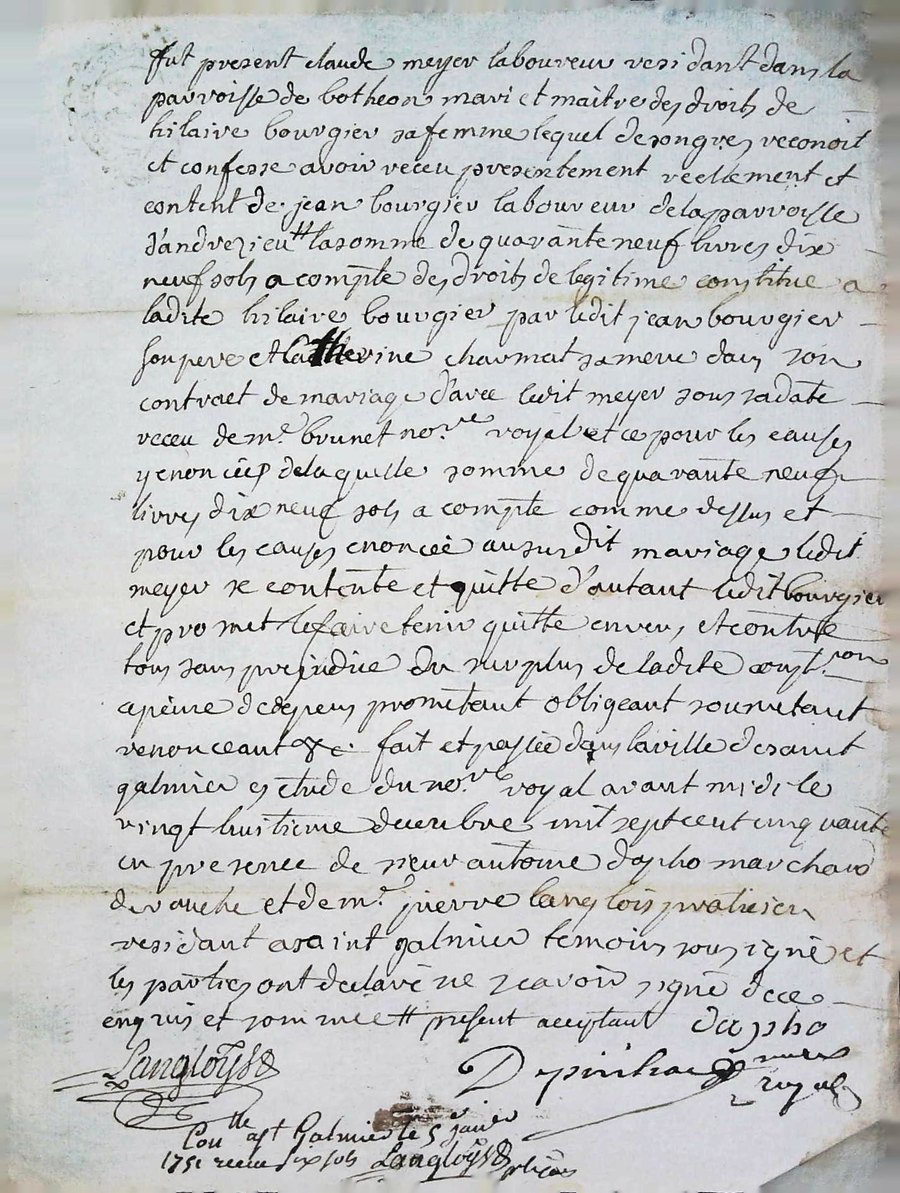 fut present claude meyer laboureur residant dans la
parroisse de botheon mari et maitre des droits de
hilaire bourgier sa femme lequel de son gres reconoit
et confesse avoir receu presentement reellement et
contant de jean bourgier laboureur de la parroisse
d'andrezieu # la somme de quarante neuf livres dix
neuf sols a compte des droits de legitime constitue a
ladite hilaire bourgier par ledit jean bourgier
son pere et Catherine charmat sa mere dans son
contract de mariage d'avec ledit meyer sous sa date
receu de me. brunet nore. royal et ce pour les causes
y enoncées de laquelle somme de quarante neuf
livres dix neuf sols a compte comme dessus et
pour les causes enoncée au susdit mariage ledit
meyer se contente et quitte d'autant ledit bourgier
et promet le faire tenir quitte envers et contre
tous sans prejudice du surplus de ladite const.on
a peine de depens prometant obligeant soumetant
renonceant &c. fait et passée dans la ville de saint
galmier estude du nore. royal avant midi le
vingt huitieme decembre mil sept cent cinquante
en presence de sieur antoine dapho marchand
et de me. pierre langlois praticien
residant a saint galmier temoins soussigné et
les parties ont declaré ne scavoir signé de ce
enquis et sommée # present acceptant dapho
Langloys
royal
Con.lle a St Galmier le 5e janvier
1751 receu six sols Langloys